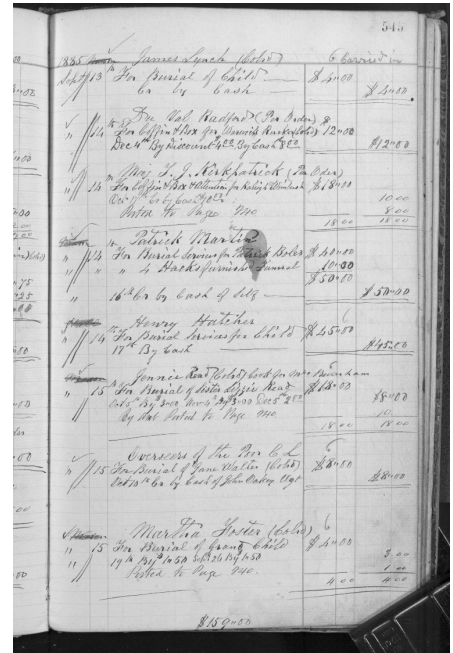 545
1885 James Lynch (Cold) 6 Carried in
Sept 13th For Burial of Child $4"00
Cr by Cash $4"00
Dr Val Radford (Per Order) $
" 14 For Coffin & Box for 12"00
Dec 4th By Discount 4.00 By Cash 8.00 $12"00
Maj T. J. Kirkpatrick (Per Oder)
" 14 For Coffin & Box & Attention for $18"00
Cr by Cash 10.00 10 00
Posted to Page 940 8 00
18 00 18 00
Patrick Martin
" 14 For Burial Services for Patrick $40"00
" " 4 Hacks furnished Funeral 10"00
$50"00
" 16th Cr by Cash of Self $50"00
Henry Hatcher 6
" 14 For Burial Services for Child $45"00
17th By Cash $45"00
Jennie Read (Cold) Cook for Mrs
" 15 For Burial of Sister Lizzie Read $18"00
Oct 5th By 3"00 Nov 4th By 3"00 Dec 5th 2.00 8"00
By Bal Posted to Page 940. 10
18 00 18 00
Overseers of the Poor C L 6
" 15 For Burial of Jane Walter (Cold) $8"00
Oct 10th Cr by Cash of John Oakey Agt $8"00
Martha Foster (Cold) 6
" 15 For Burial of Grand Child $4"00
" 19th By 1"50 Sept 26 By 1"50 3.00
Posted to Page 940. 1 00
4 00 4 00
$159"00